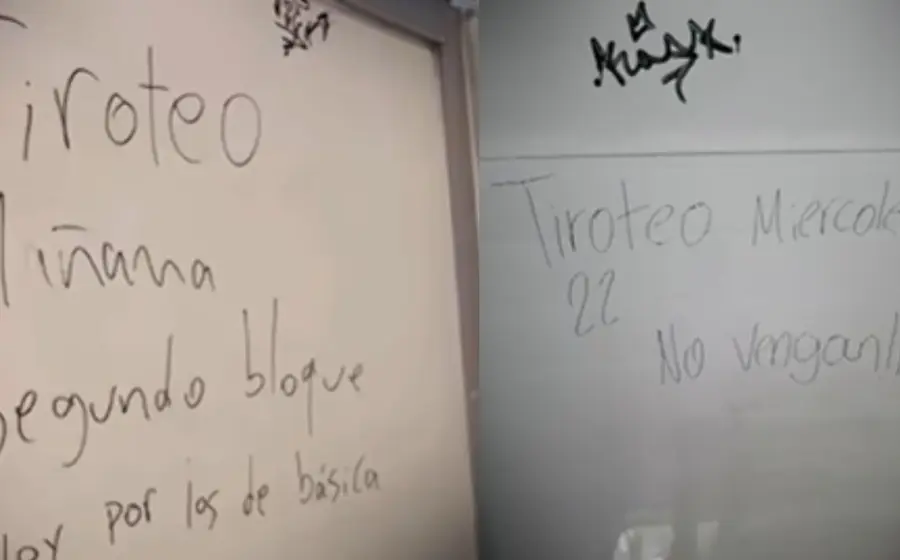 Tiroteo
Miñana
segundo bloque
Voy por los de básica
Tiroteo Miercole
22
No vengan!!